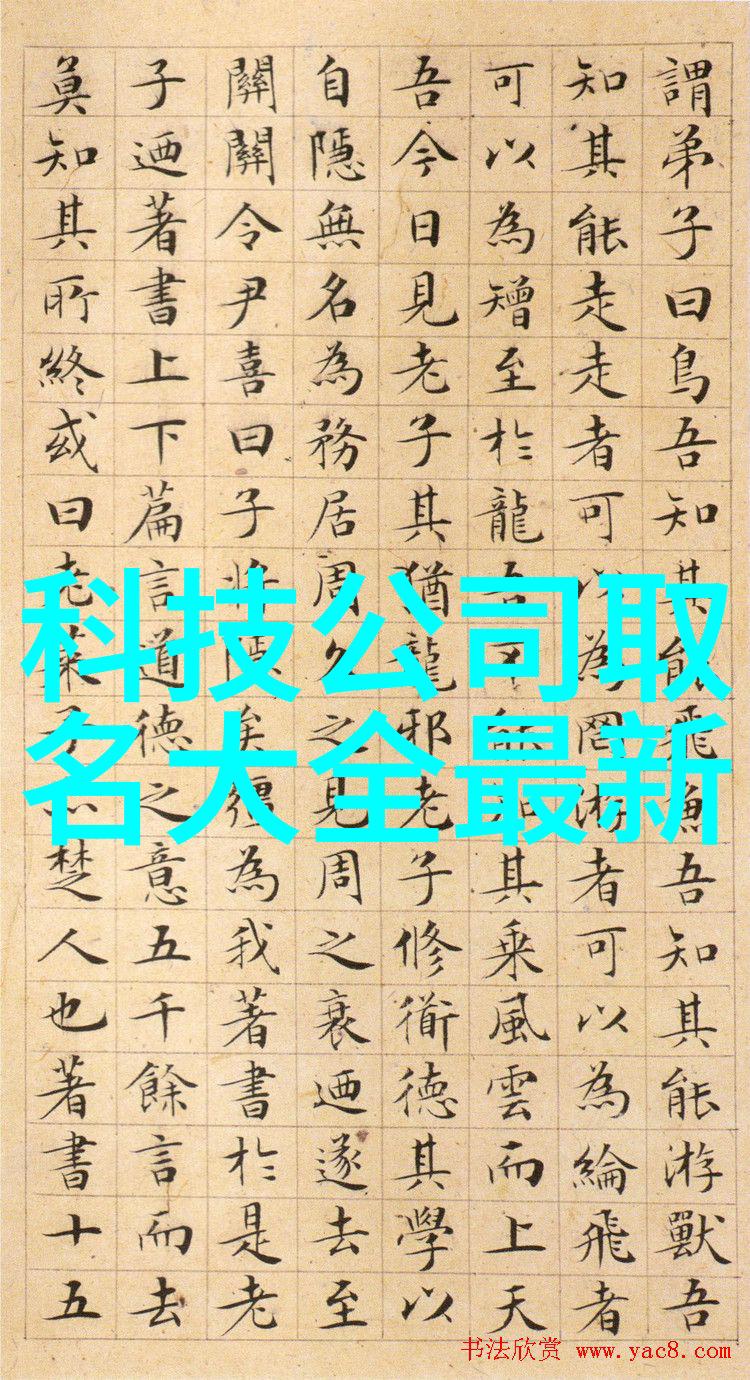 謂弟子曰鳥吾知其能飛魚吾知其能游獸吾
知其能走走者可以為罔游者可以為綸飛者
可以為矰至於龍吾不能知其乘風雲而上天
吾今日見老子其猶龍邪老子修衜德其學以
自隱無名為務居周久之見周之衰迺遂去至
關關令尹喜曰子將隱矣彊為我著書於是老
子迺著書上下篇言道德之意五千餘言而去
莫知其所終或曰老萊子亦楚人也著書十五
科技公司取
名大全最新
书法欣赏 www.yac8.com